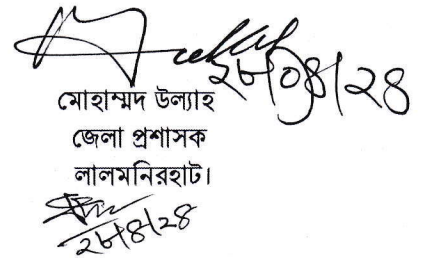 ২৮/০৪/২৪
মোহাম্মদ উল্যাহ
জেলা প্রশাসক
লালমনিরহাট।
২৮/৪/২৪